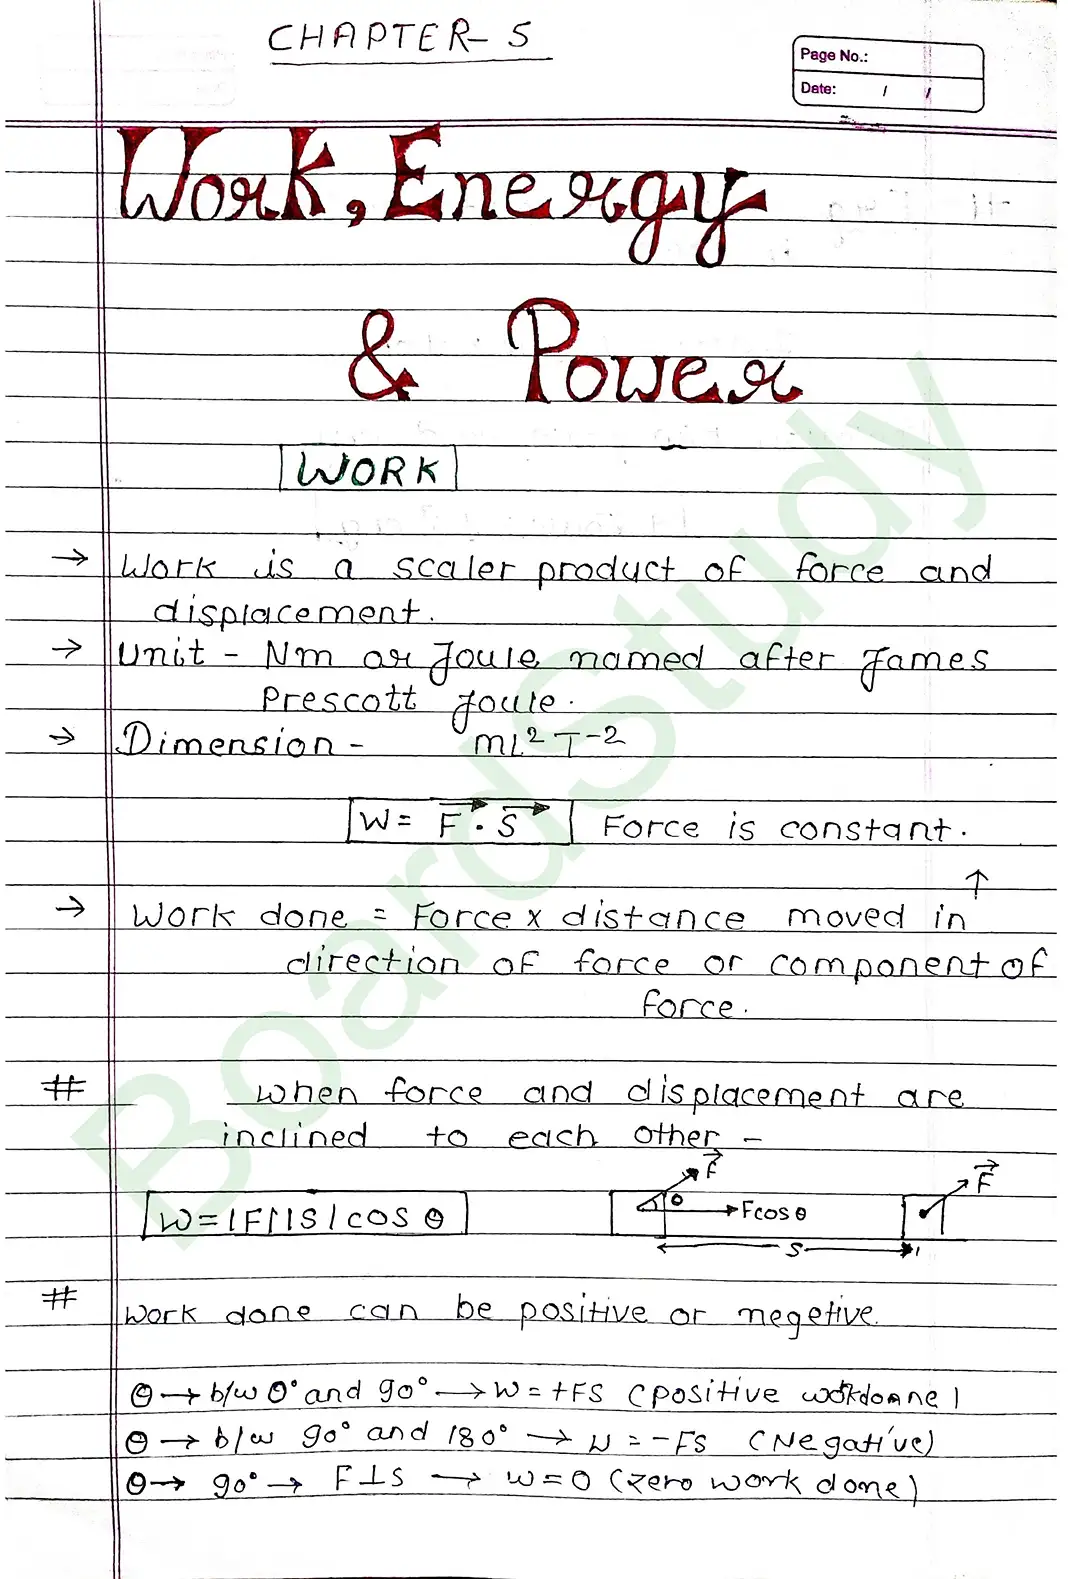 CHAPTER-5
Page No.:
Date: / /
Work, Energy
& Power
WORK
→ Work is a scaler product of force and
displacement.
→ Unit - Nm or Joule named after James
Prescott Joule.
→ Dimension - ML² T⁻²
W = F⃗ · S⃗ Force is constant.
↑
→ Work done = Force x distance moved in
direction of force or component of
force.
# when force and displacement are
inclined to each other -
F⃗ F⃗
W = |F||S| cos θ θ Fcosθ
S
# Work done can be positive or negetive.
θ → b/w 0° and 90° → W = +FS (positive workdonne)
θ → b/w 90° and 180° → W = -FS (Negative)
θ → 90° → F⊥S → W = 0 (zero work done)
BoardStudy